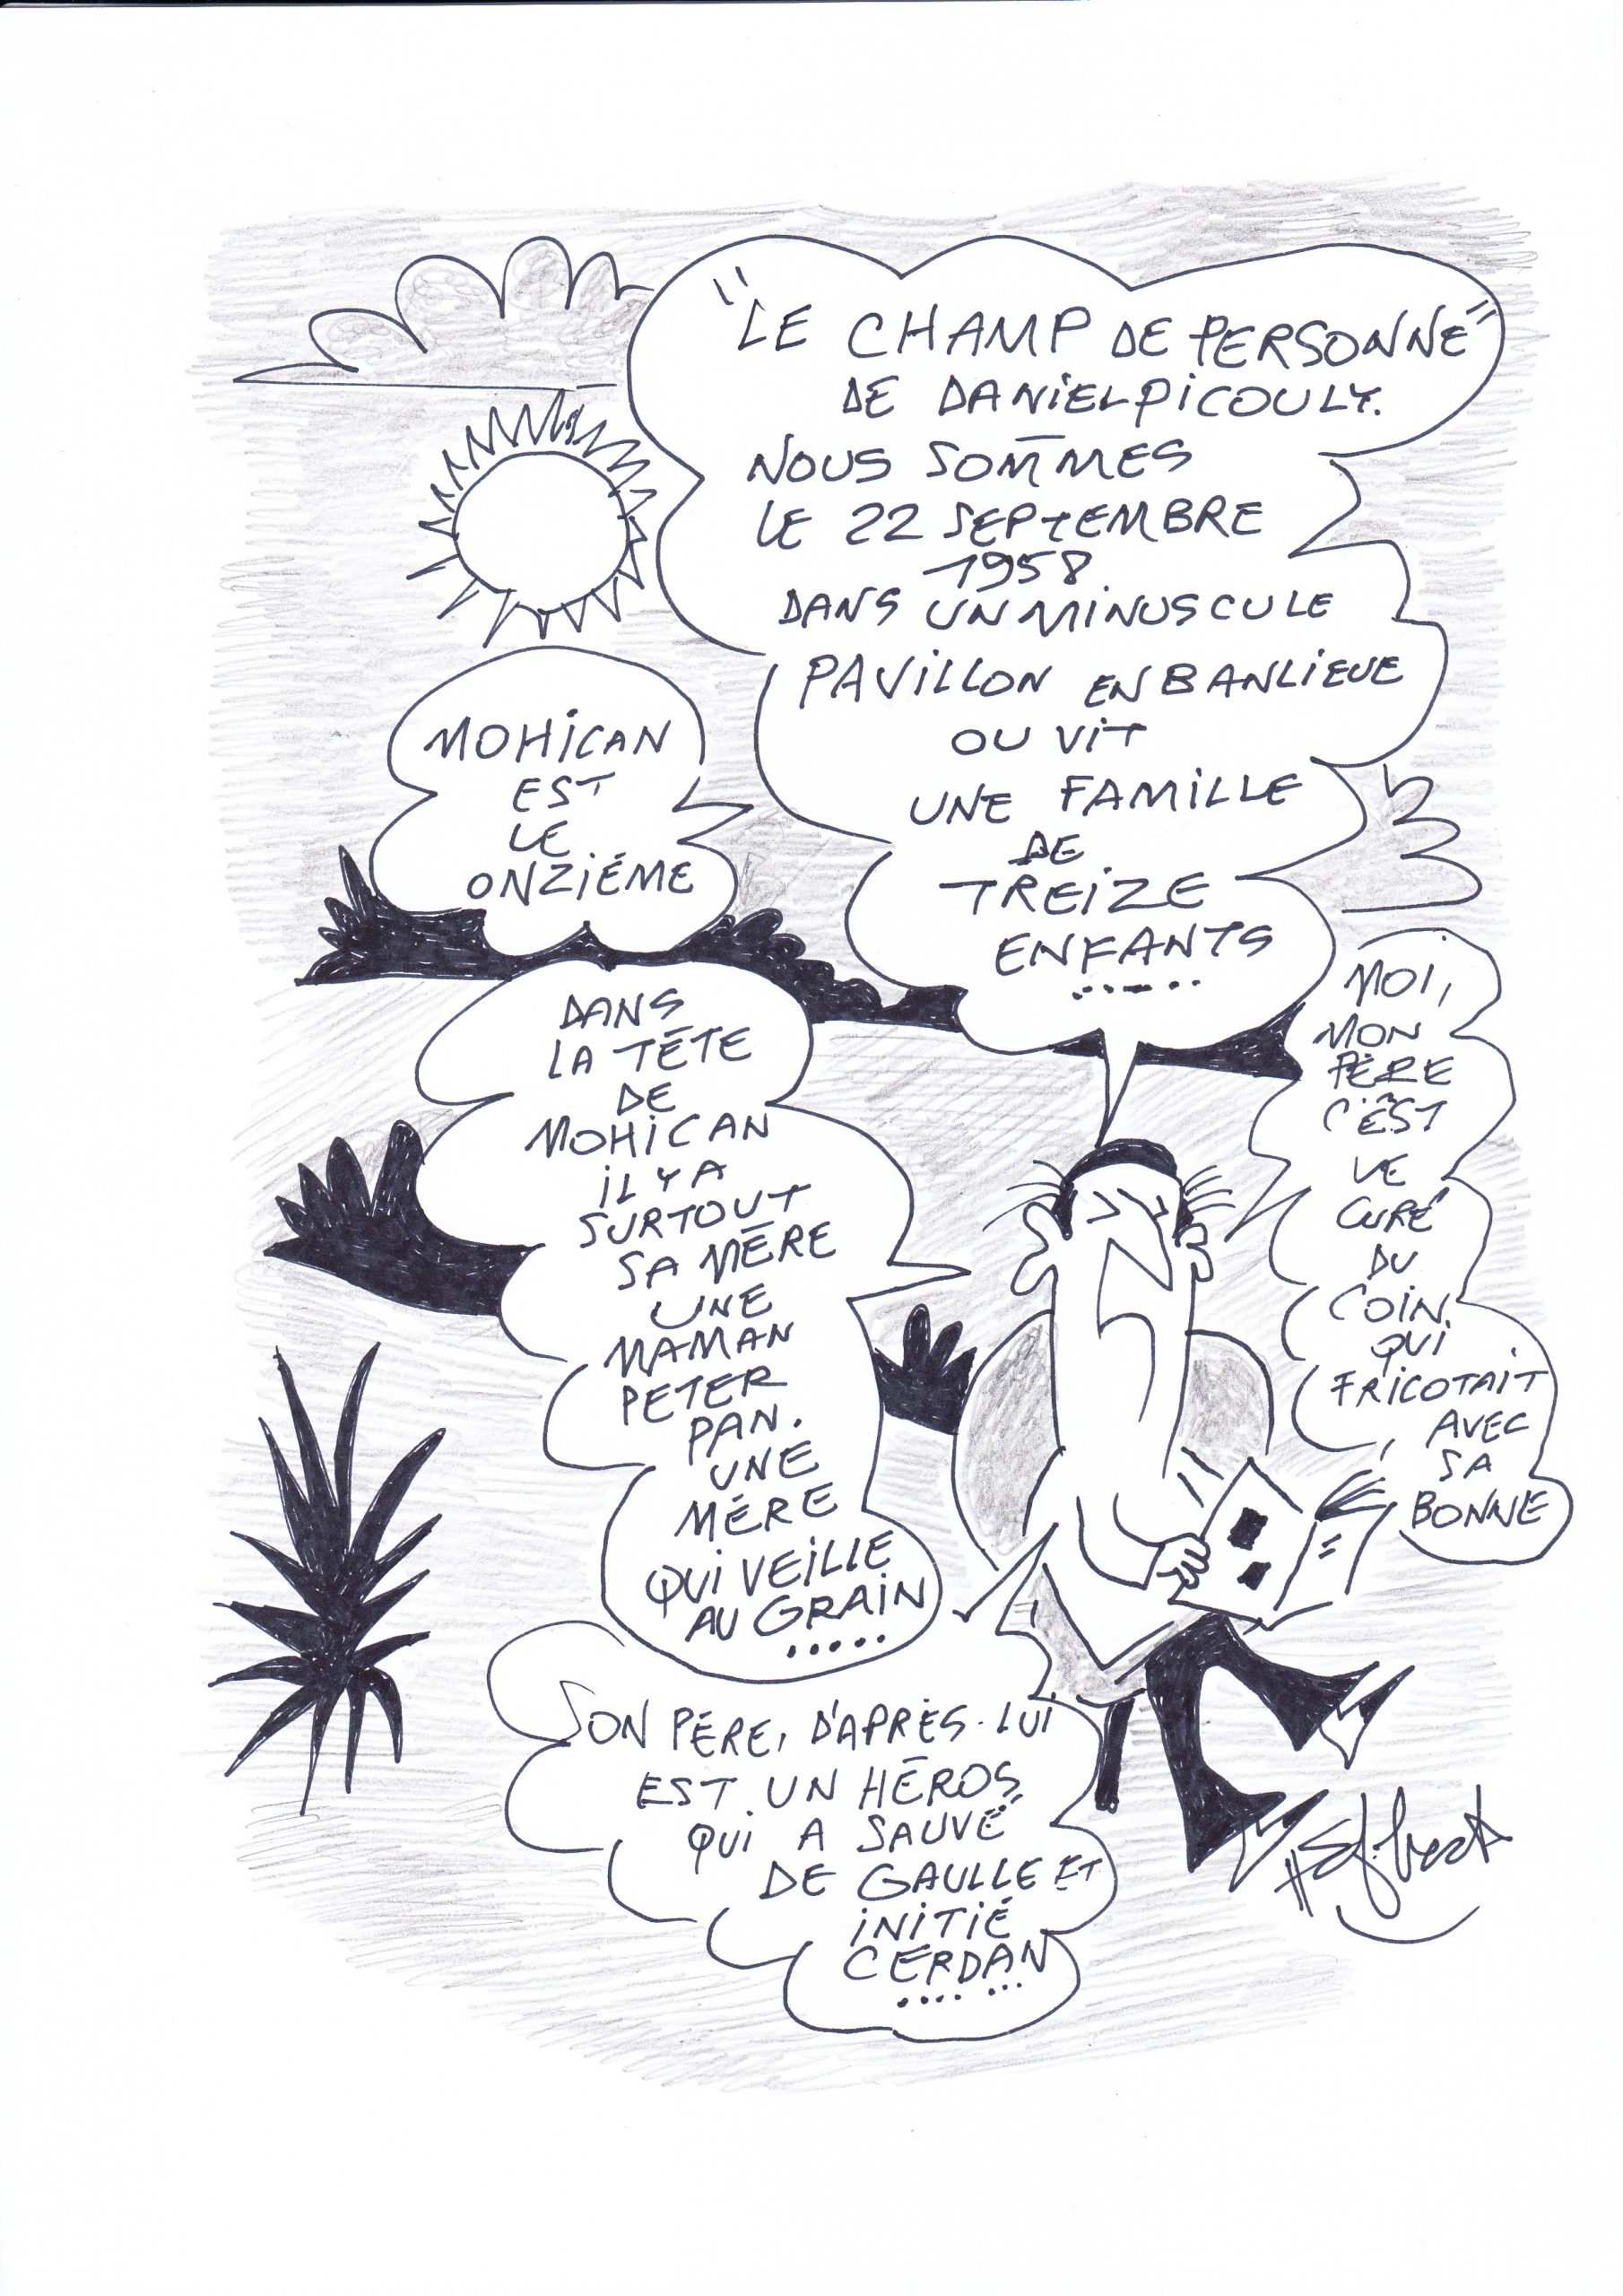 "LE CHAMP DE PERSONNE"
DE DANIEL PICOULY.
NOUS SOMMES
LE 22 SEPTEMBRE
1958
DANS UN MINUSCULE
PAVILLON EN BANLIEUE
OU VIT
UNE FAMILLE
DE
TREIZE
ENFANTS
......
MOHICAN
EST
LE
ONZIÉME
DANS
LA TÊTE
DE
MOHICAN
IL Y A
SURTOUT
SA MÈRE
UNE
MAMAN
PETER
PAN.
UNE
MÉRE
QUI VEILLE
AU GRAIN
.....
SON PÉRE, D'APRÉS-LUI
EST UN HÉROS
QUI A SAUVÉ
DE GAULLE ET
INITIÉ
CERDAN
.... ...
MOI,
MON
PÉRE
C'EST
LE
CURÉ
DU
COIN.
QUI
FRICOTAIT
AVEC
SA
BONNE